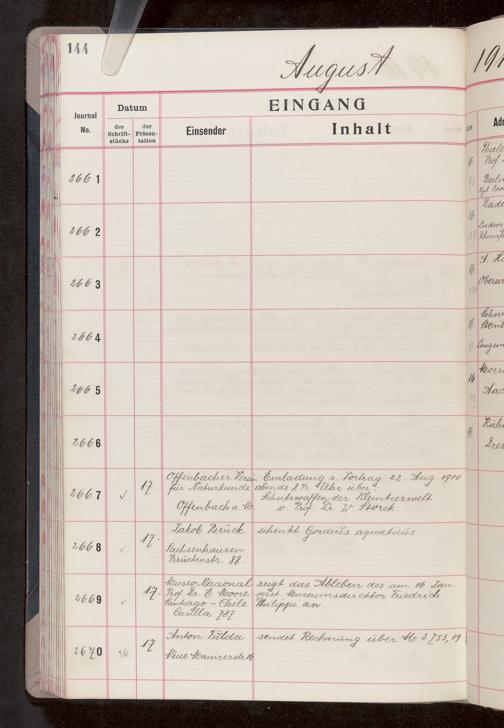 144
August
Journal No.
Datum
EINGANG
des Schriftstücks
der Präsentation
Einsender
Inhalt
2661
2662
2663
2664
2665
2666
2667 17. Offenbacher Verein Einladung z. Vortrag 22. Aug 1910
für Naturkunde abends 8 1/2 Uhr über
Schutzwaffen der Kleintierwelt
Offenbach a. M. v. Prof. Dr. W Storck
2668 17. Jakob Bruck schenkt Gordius aquaticus
Sachsenhausen
Brückenstr. 88.
2669 17. Museo Nacional zeigt das Ableben des am 16. Jan
Prof. Dr. E Moore verst. Museumsdirektor Friedrich
Santiago - Chile Philippi an.
Casilla 787
2670 17 Anton Fulda sendet Rechnung über M 2753,19
Neue Mainzerstr 16